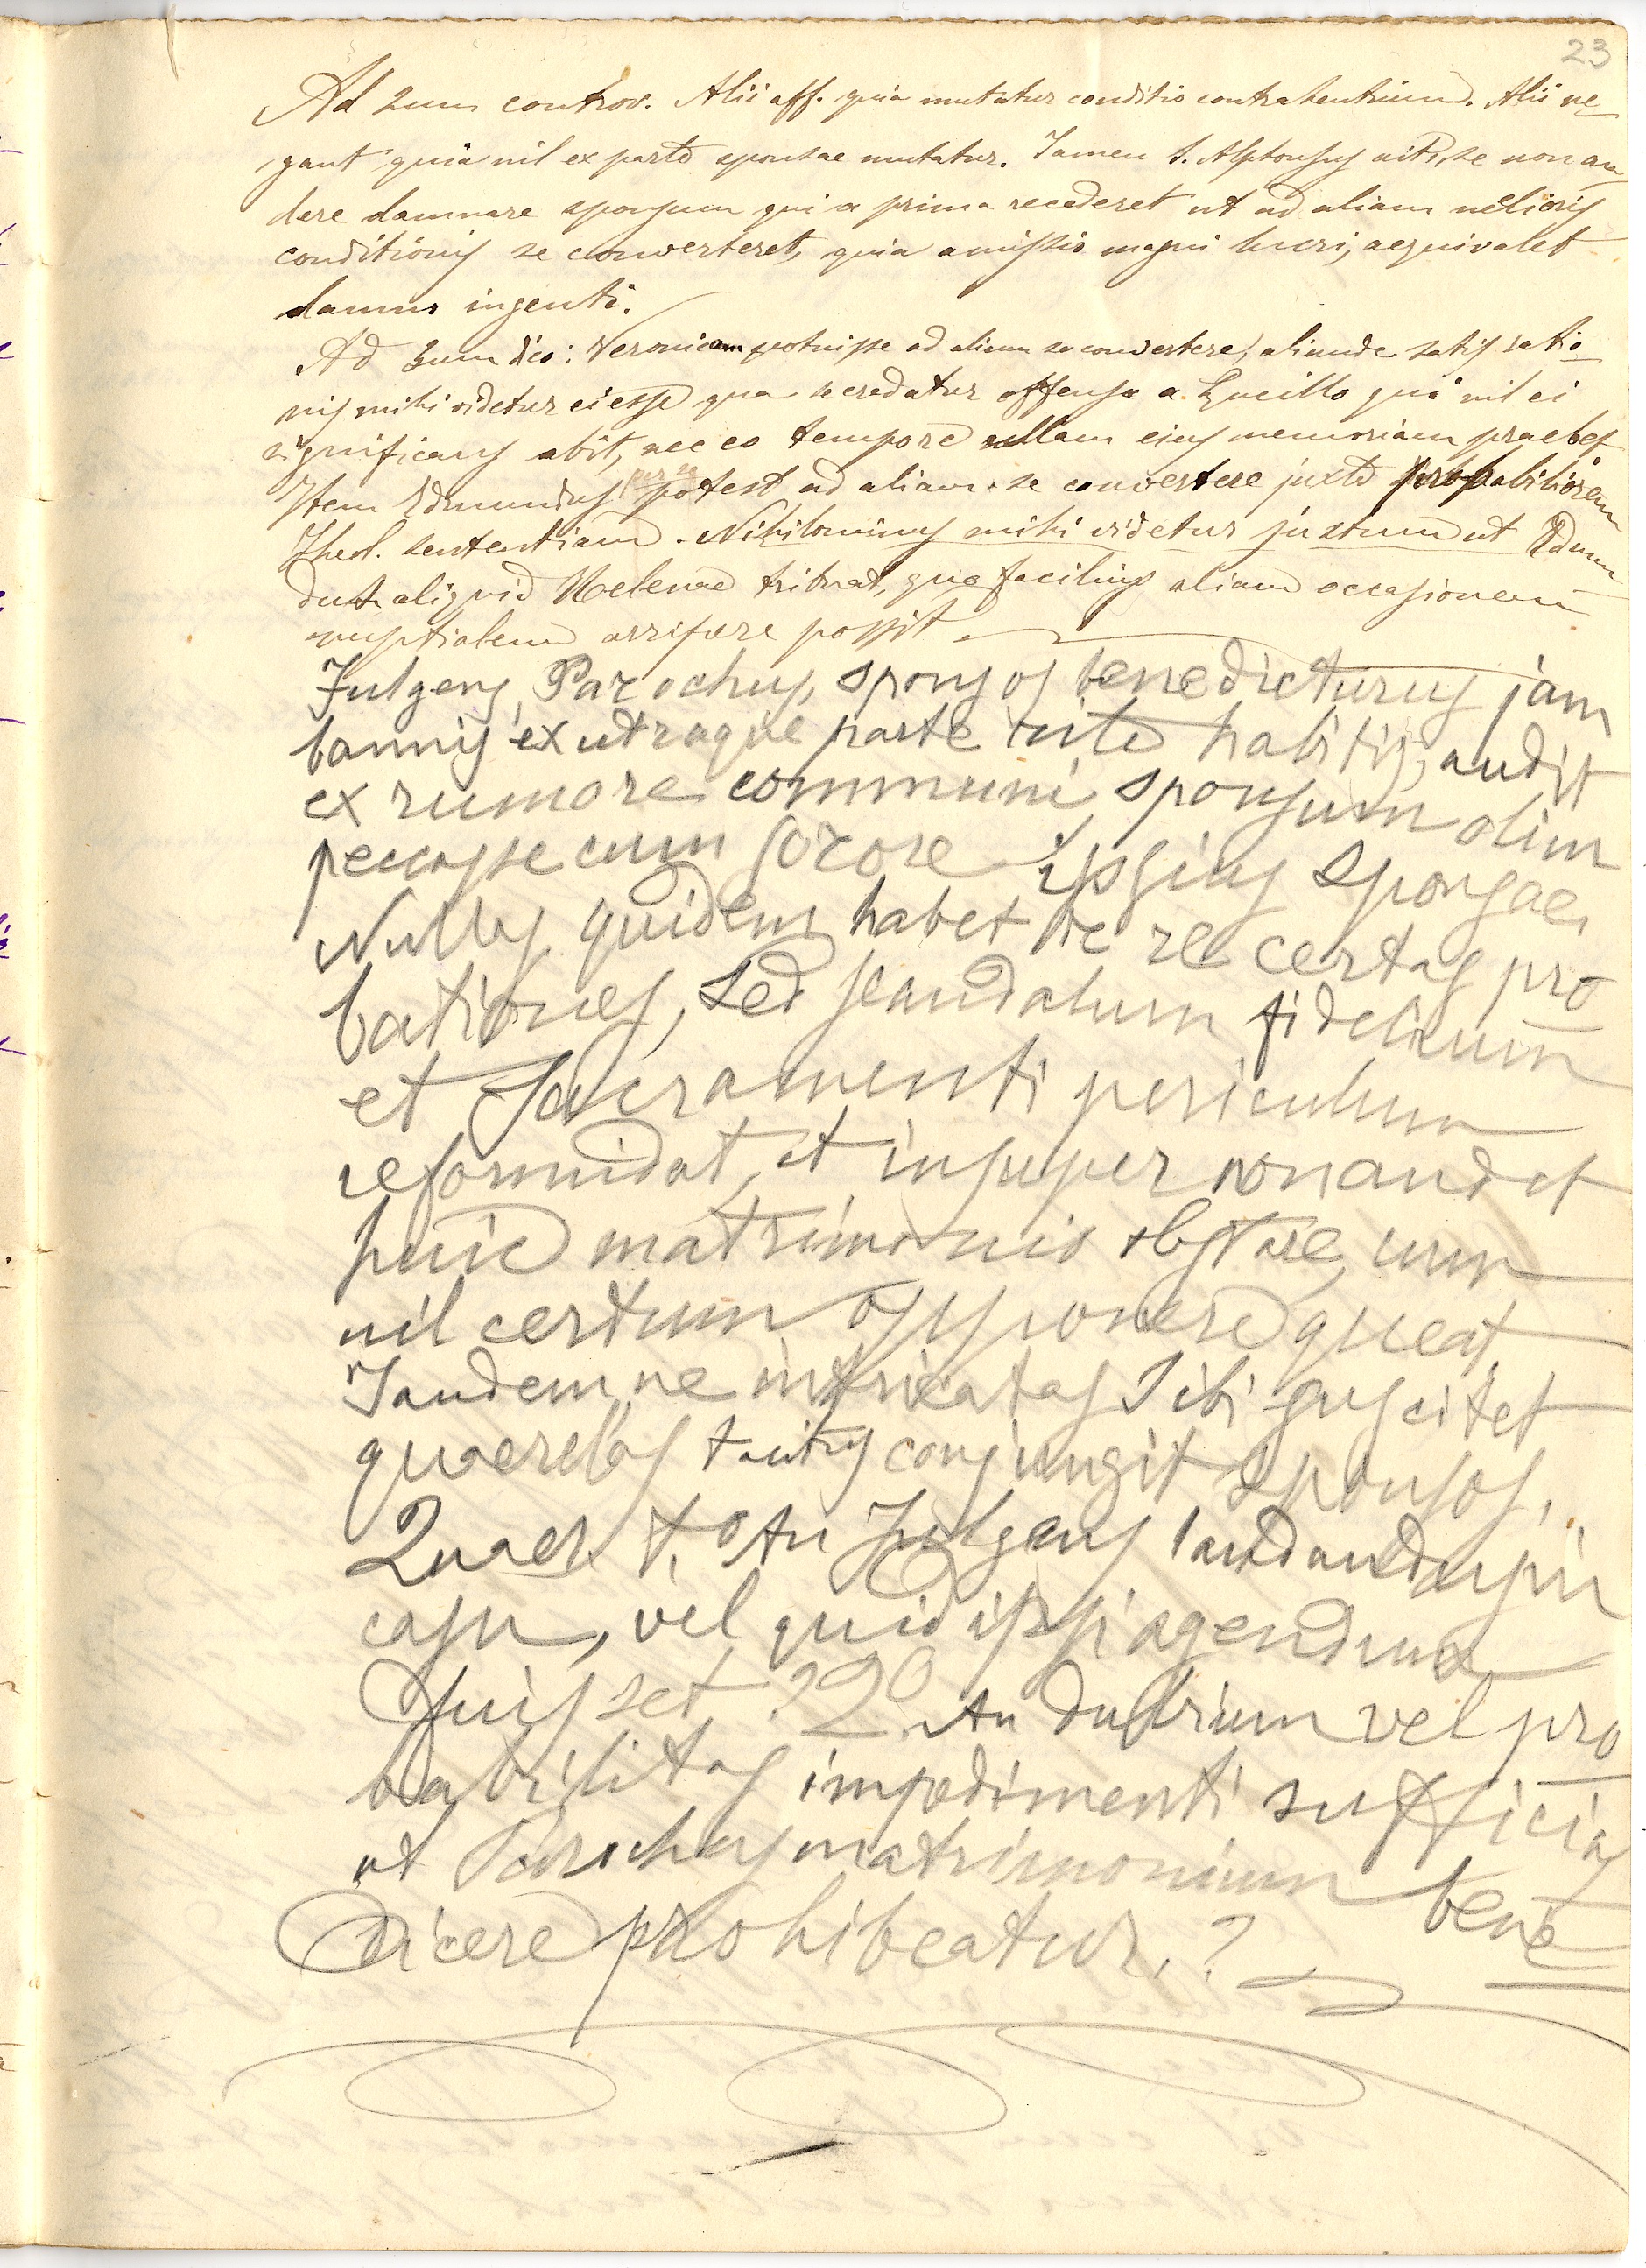 23
Ad 2um controv. Alii aff. quia mutatur conditio contrahentium. Alii ne
gant quia nil ex parte sponsae mutatur. Tamen S. Alphonsus ait, se non au
dere damnare sponsum qui a prima recederet ut ad aliam melioris
conditionis se converteret, quia amissio magni lucri, aequivalet
damno ingenti.
Ad 3um dico: Veronicam potuisse ad alium se convertere, aliunde satis ratio
nis mihi videtur ei esse qua se credatur offensa a Lucillo qui nil ei
significans abit, nec eo tempore ullam ejus memoriam praebet
Item Edmundus per se potest ad aliam se convertere juxta probabiliorem
Theol. sententiam. Nihilominus mihi videtur justum ut Edmun
dus aliquid Helenae tribuat, quo facilius aliam occasionem
nuptialem arripere possit.
Fulgens, Parochus, sponsos benedicturus jam
bannis ex utraque parte rite habitis, audit
ex rumore communi, sponsum olim
peccasse cum sorore ipsius sponsae,
Nullas quidem habet de re certas pro
bationes, sed scandalum fidelium
et Sacramenti periculum
reformidat, et insuper non audet
huic matrimonio obstare, cum
nil certum opponere queat.
Tandem, ne intricatas sibi suscitet
quaerelas tacitus conjungit sponsos.
Quaer. 1.o An Fulgens laudandus in
casu, vel quid ipsi agendum
fuisset? 2o An dubium vel pro
babilitas impedimenti sufficiat
ut Parochus matrimonium bene
dicere prohibeatur.?